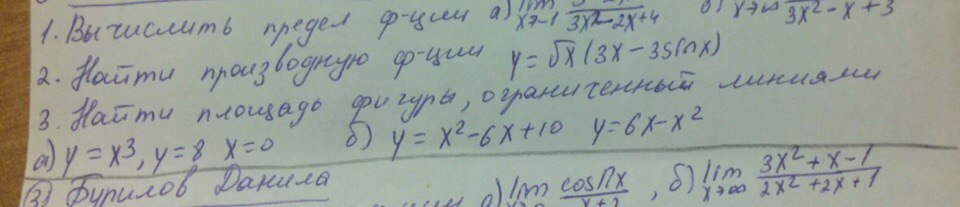 1. Вычислить предел ф-ции а) lim x→-1 3x²-2x+4 б) x→∞ 3x²-x+3
2. Найти производную ф-ции y=√x(3x-3sinx)
3. Найти площадь фигуры, ограниченный линиями
а) y=x3, y=8 x=0 б) y=x²-6x+10 y=6x-x²
(3) Бурилов Данила
а) lim cosπx , б) lim x→∞ 3x²+x-1 / 2x²+2x+1